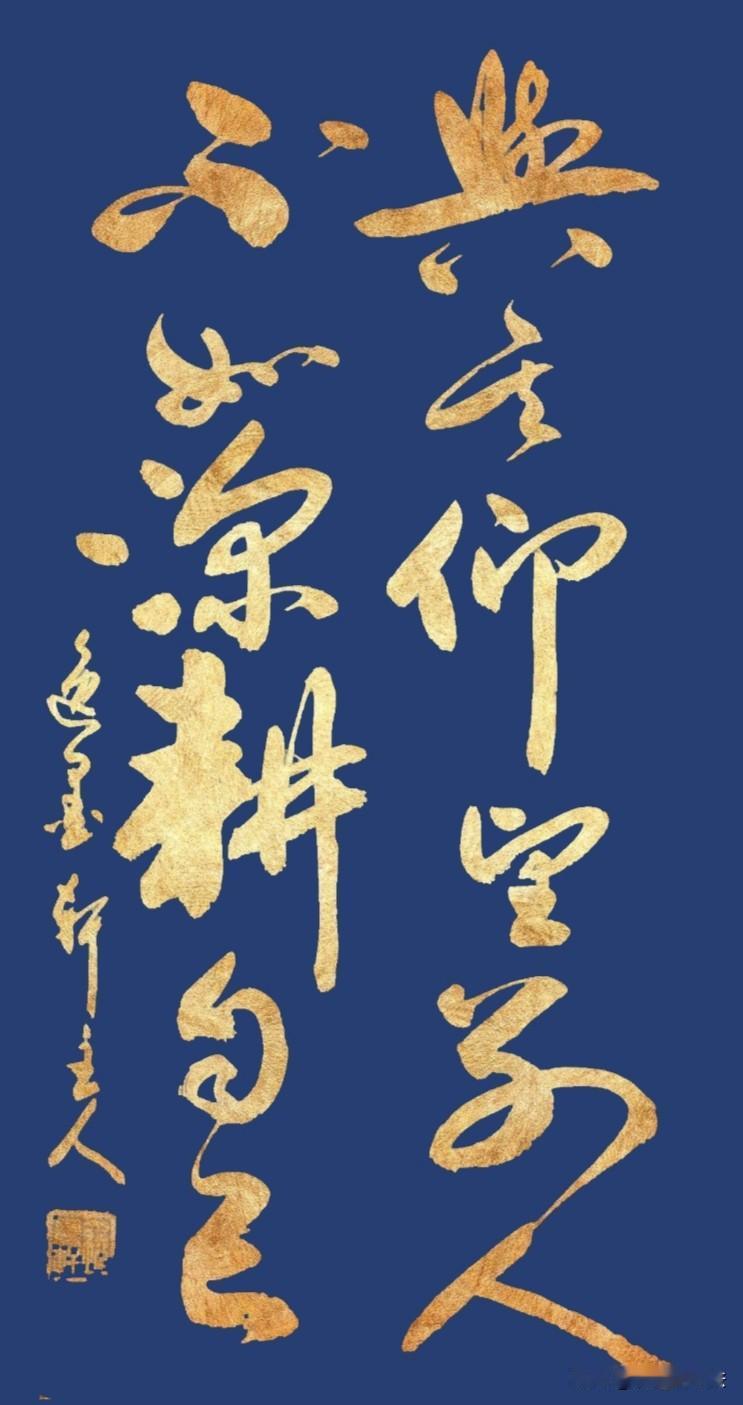 與其仰望別人
不如深耕自己
逸墨軒主人